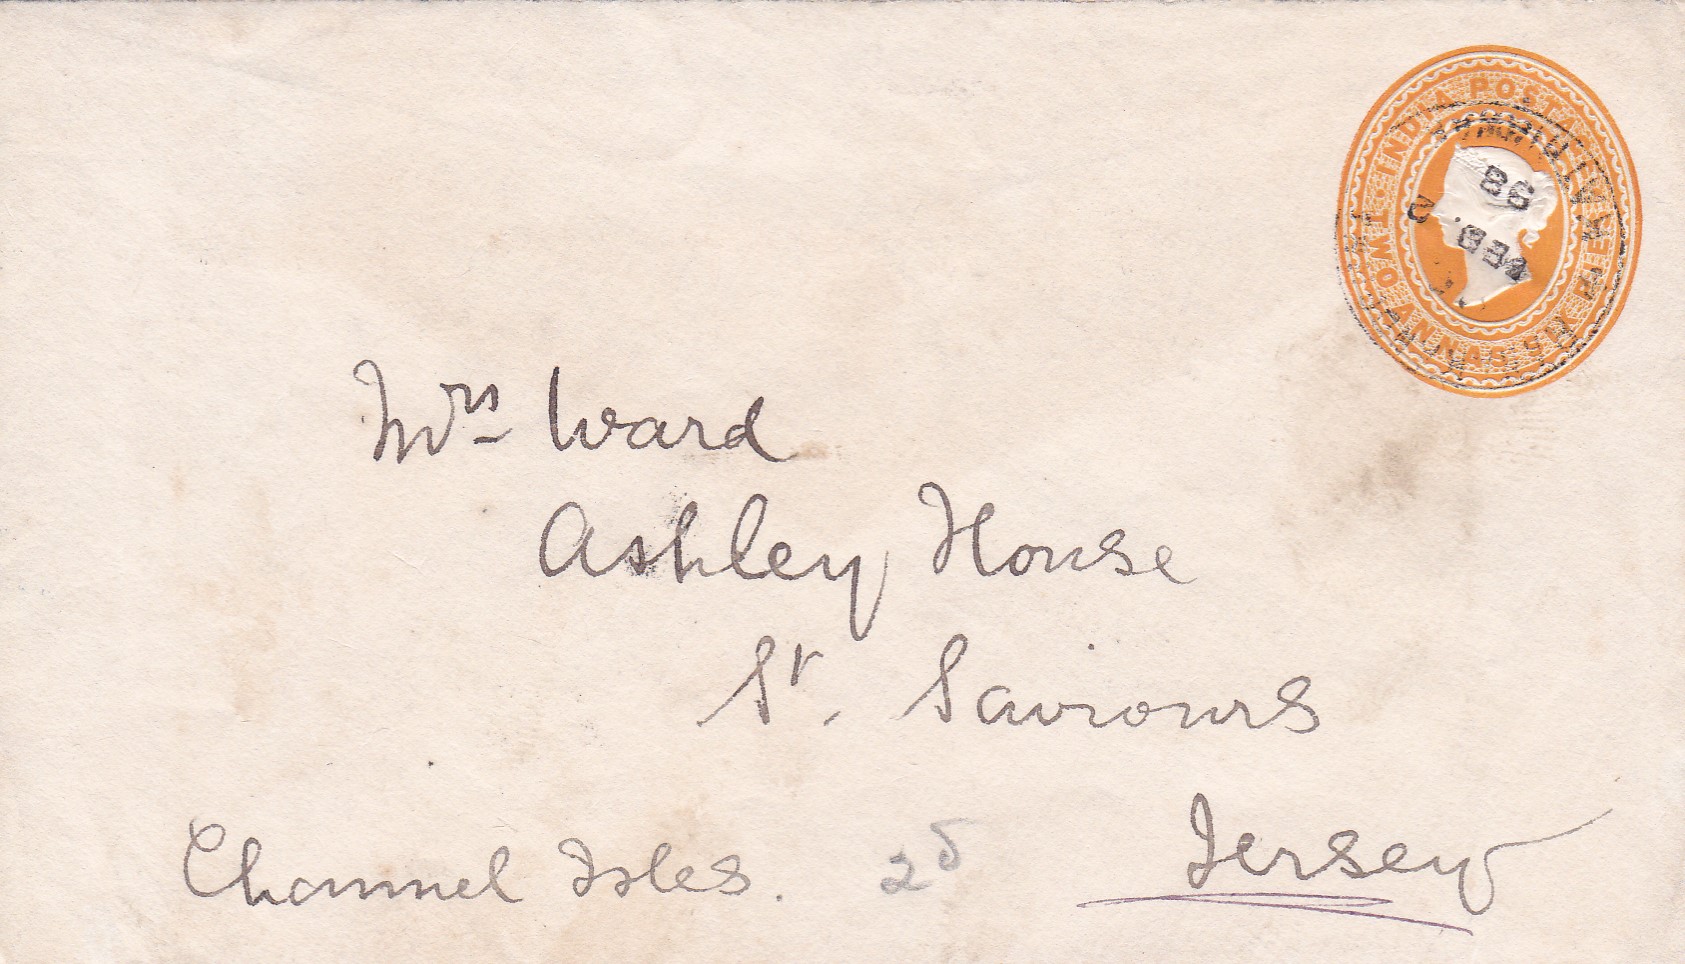 INDIA POSTAGE
TWO ANNAS SIX PIES
98
2
FEB.
Mrs Ward
Ashley House
St. Saviours
Jersey
Channel Isles.
2d